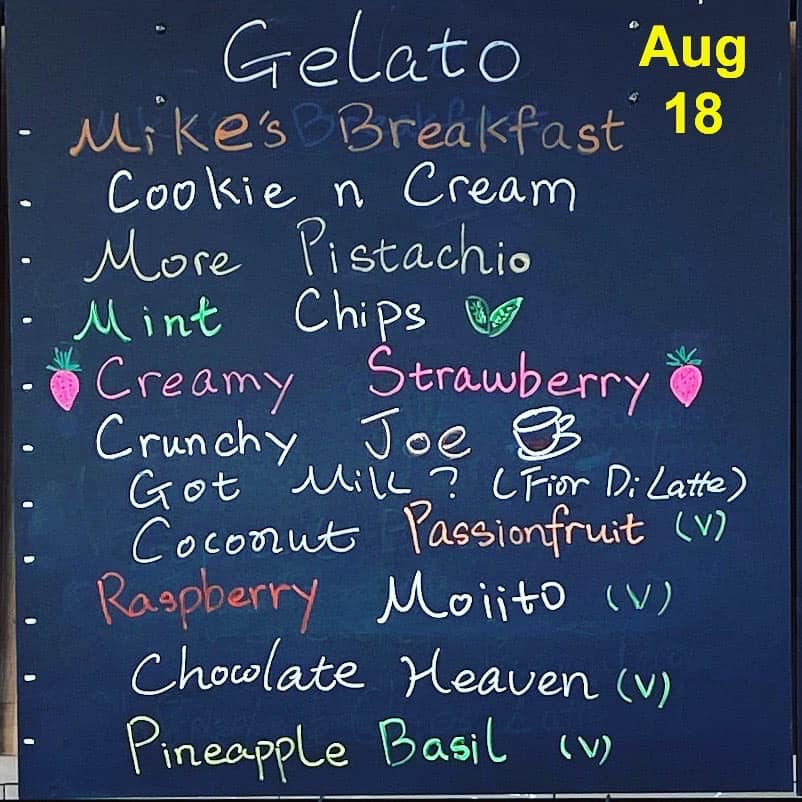 Gelato
Aug
18
- Mike's Breakfast
- Cookie n Cream
- More Pistachio
- Mint Chips
- Creamy Strawberry
- Crunchy Joe
- Got Milk? (Fior Di Latte)
- Coconut Passionfruit (V)
- Raspberry Moiito (V)
- Chocolate Heaven (V)
- Pineapple Basil (V)